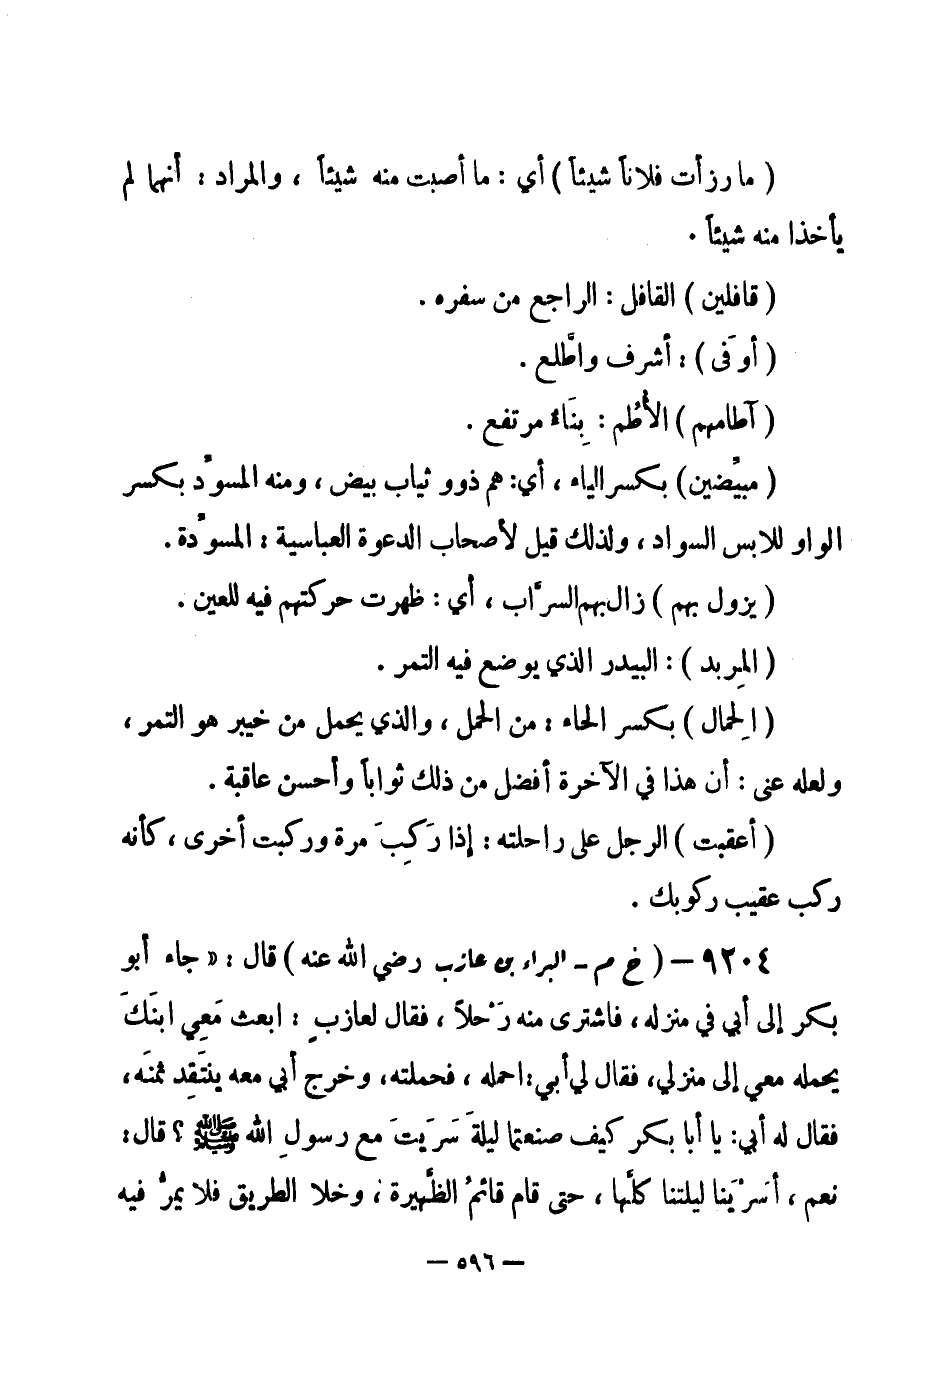 ( ما رزأت فلاناً شيئاً ) أي : ما أصبت منه شيئاً ، والمراد : أنهما لم
يأخذا منه شيئاً .
( قافلين ) القافل : الراجع من سفره .
( أوفَى ) : أشرف واطَّلع .
( آطامهم ) الأُطُم : بِنَاءٌ مرتفع .
( مبيِّضين ) بكسر الياء ، أي : هم ذوو ثياب بيض ، ومنه المسوِّد بكسر
الواو للابس السواد ، ولذلك قيل لأصحاب الدعوة العباسية : المسوِّدة .
( يزول بهم ) زال بهم السرَّاب ، أي : ظهرت حركتهم فيه للعين .
( المِربد ) : البيدر الذي يوضع فيه التمر .
( الِحمال ) بكسر الحاء : من الحمل ، والذي يحمل من خيبر هو التمر ،
ولعله عنى : أن هذا في الآخرة أفضل من ذلك ثواباً وأحسن عاقبة .
( أعقبت ) الرجل على راحلته : إذا رَكِبَ مرة وركبت أخرى ، كأنه
ركب عقيب ركوبك .
٩٢٠٤ – ( خ م – البراء بن عازب رضي الله عنه ) قال : « جاء أبو
بكر إلى أبي في منزله ، فاشترى منه رَحْلاً ، فقال لعازبٍ : ابعث مَعِي ابنَكَ
يحمله معي إلى منزلي، فقال لي أبي : احمله ، فحملته، وخرج أبي معه ينتَقِد ثمنَه،
فقال له أبي: يا أبا بكر كيف صنعتما ليلةَ سَرَيتَ مع رسولِ الله ﷺ ؟ قال :
نعم ، أسَرْيَنا ليلتنا كلَّها ، حتى قام قائمُ الظَّهيرة ، وخلا الطريق فلا يمرُّ فيه
– ٥٩٦ –